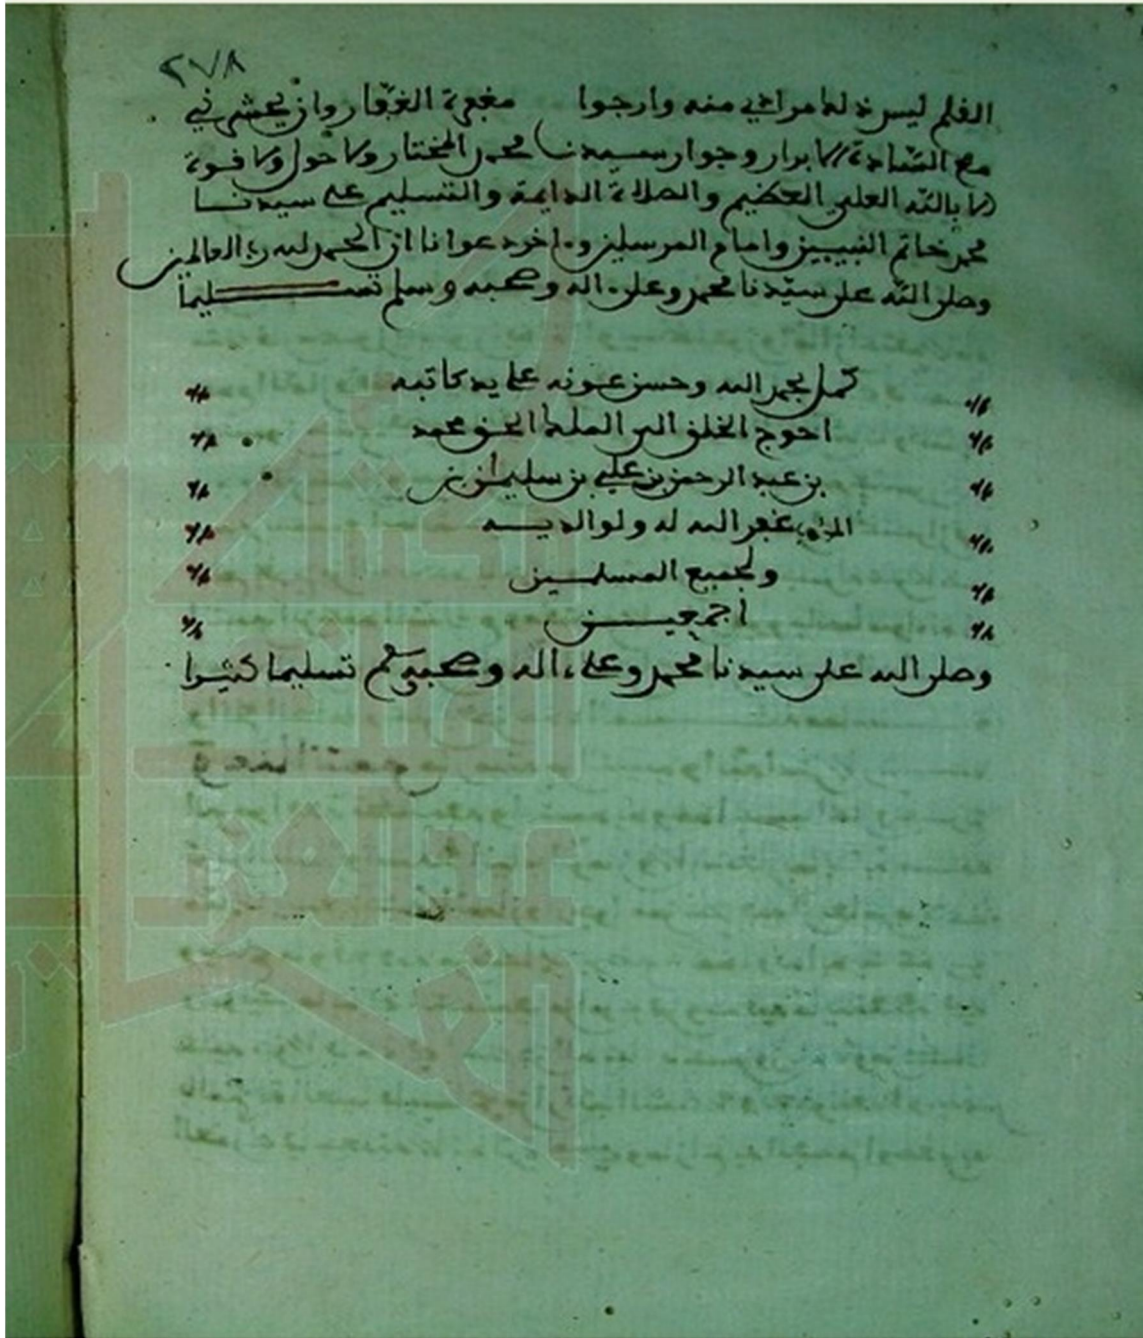 ٢٧٨
القلم ليس ذلك مراحي منه وارجوا مغفرة الغفار وان يحشرني
مع السادة الابرار وجوار سيدنا محمد المختار ولا حول ولا قوة
الا بالله العلي العظيم والصلاة الدايمة والتسليم على سيدنا
محمد خاتم النبيين وامام المرسلين واخر دعوانا ان الحمد لله رب العالمين
وصلى الله على سيدنا محمد وعلى ءاله وصحبه وسلم تسليما
كمل بحمد الله وحسن عونه على يد كاتبه
احوج الخلق الى الملك الحق محمد
بن عبد الرحمن بن علي بن سليمان بن
غفر الله له ولوالديه
ولجميع المسلمين
اجمعين
وصلى الله على سيدنا محمد وعلى ءاله وصحبه وسلم تسليما كثيرا